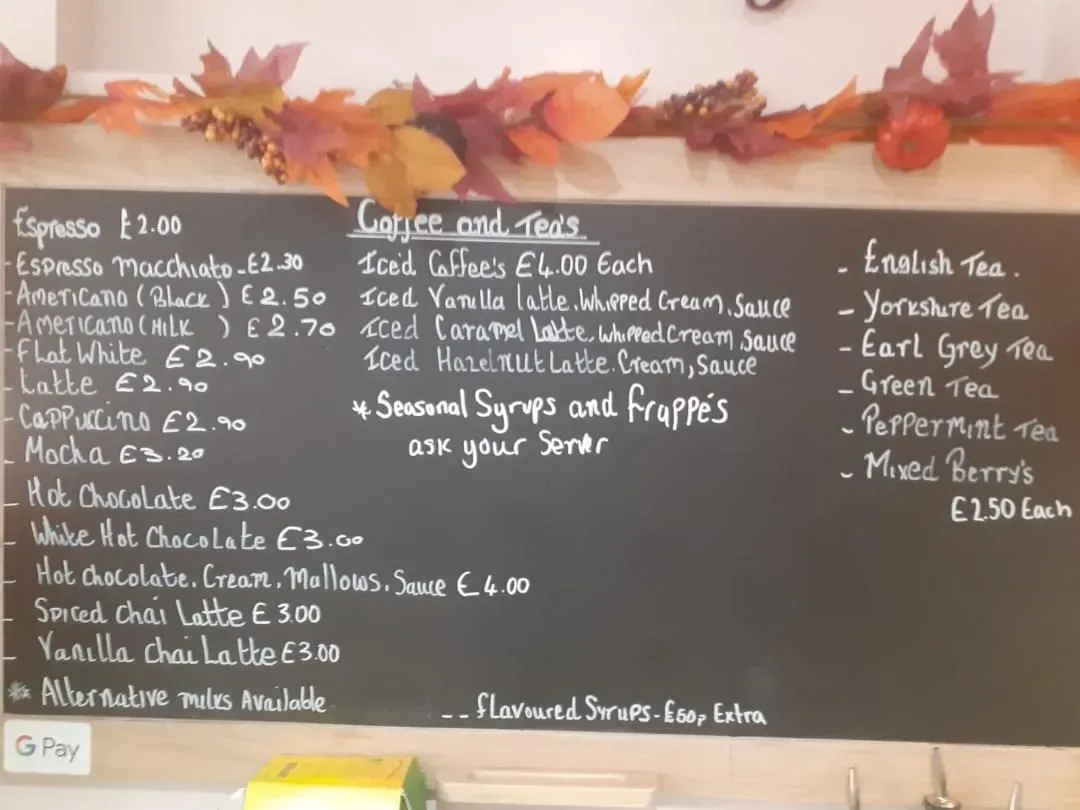 Espresso £2.00
- Espresso Macchiato - £2.30
- Americano (Black) £2.50
- Americano (Milk) £2.70
- Flat White £2.90
- Latte £2.90
- Cappuccino £2.90
- Mocha £3.20
- Hot Chocolate £3.00
- White Hot Chocolate £3.00
- Hot Chocolate. Cream. Mallows. Sauce £4.00
- Spiced Chai Latte £3.00
- Vanilla Chai Latte £3.00
* Alternative milks Available
Coffee and Tea's
Iced Coffee's £4.00 Each
Iced Vanilla latte. Whipped Cream, Sauce
Iced Caramel Latte, Whipped Cream, Sauce
Iced Hazelnut Latte. Cream, Sauce
* Seasonal Syrups and frappé's
ask your Server
-- flavoured Syrups - £50p Extra
- English Tea.
- Yorkshire Tea
- Earl Grey Tea
- Green Tea
- Peppermint Tea
- Mixed Berry's
£2.50 Each
G Pay